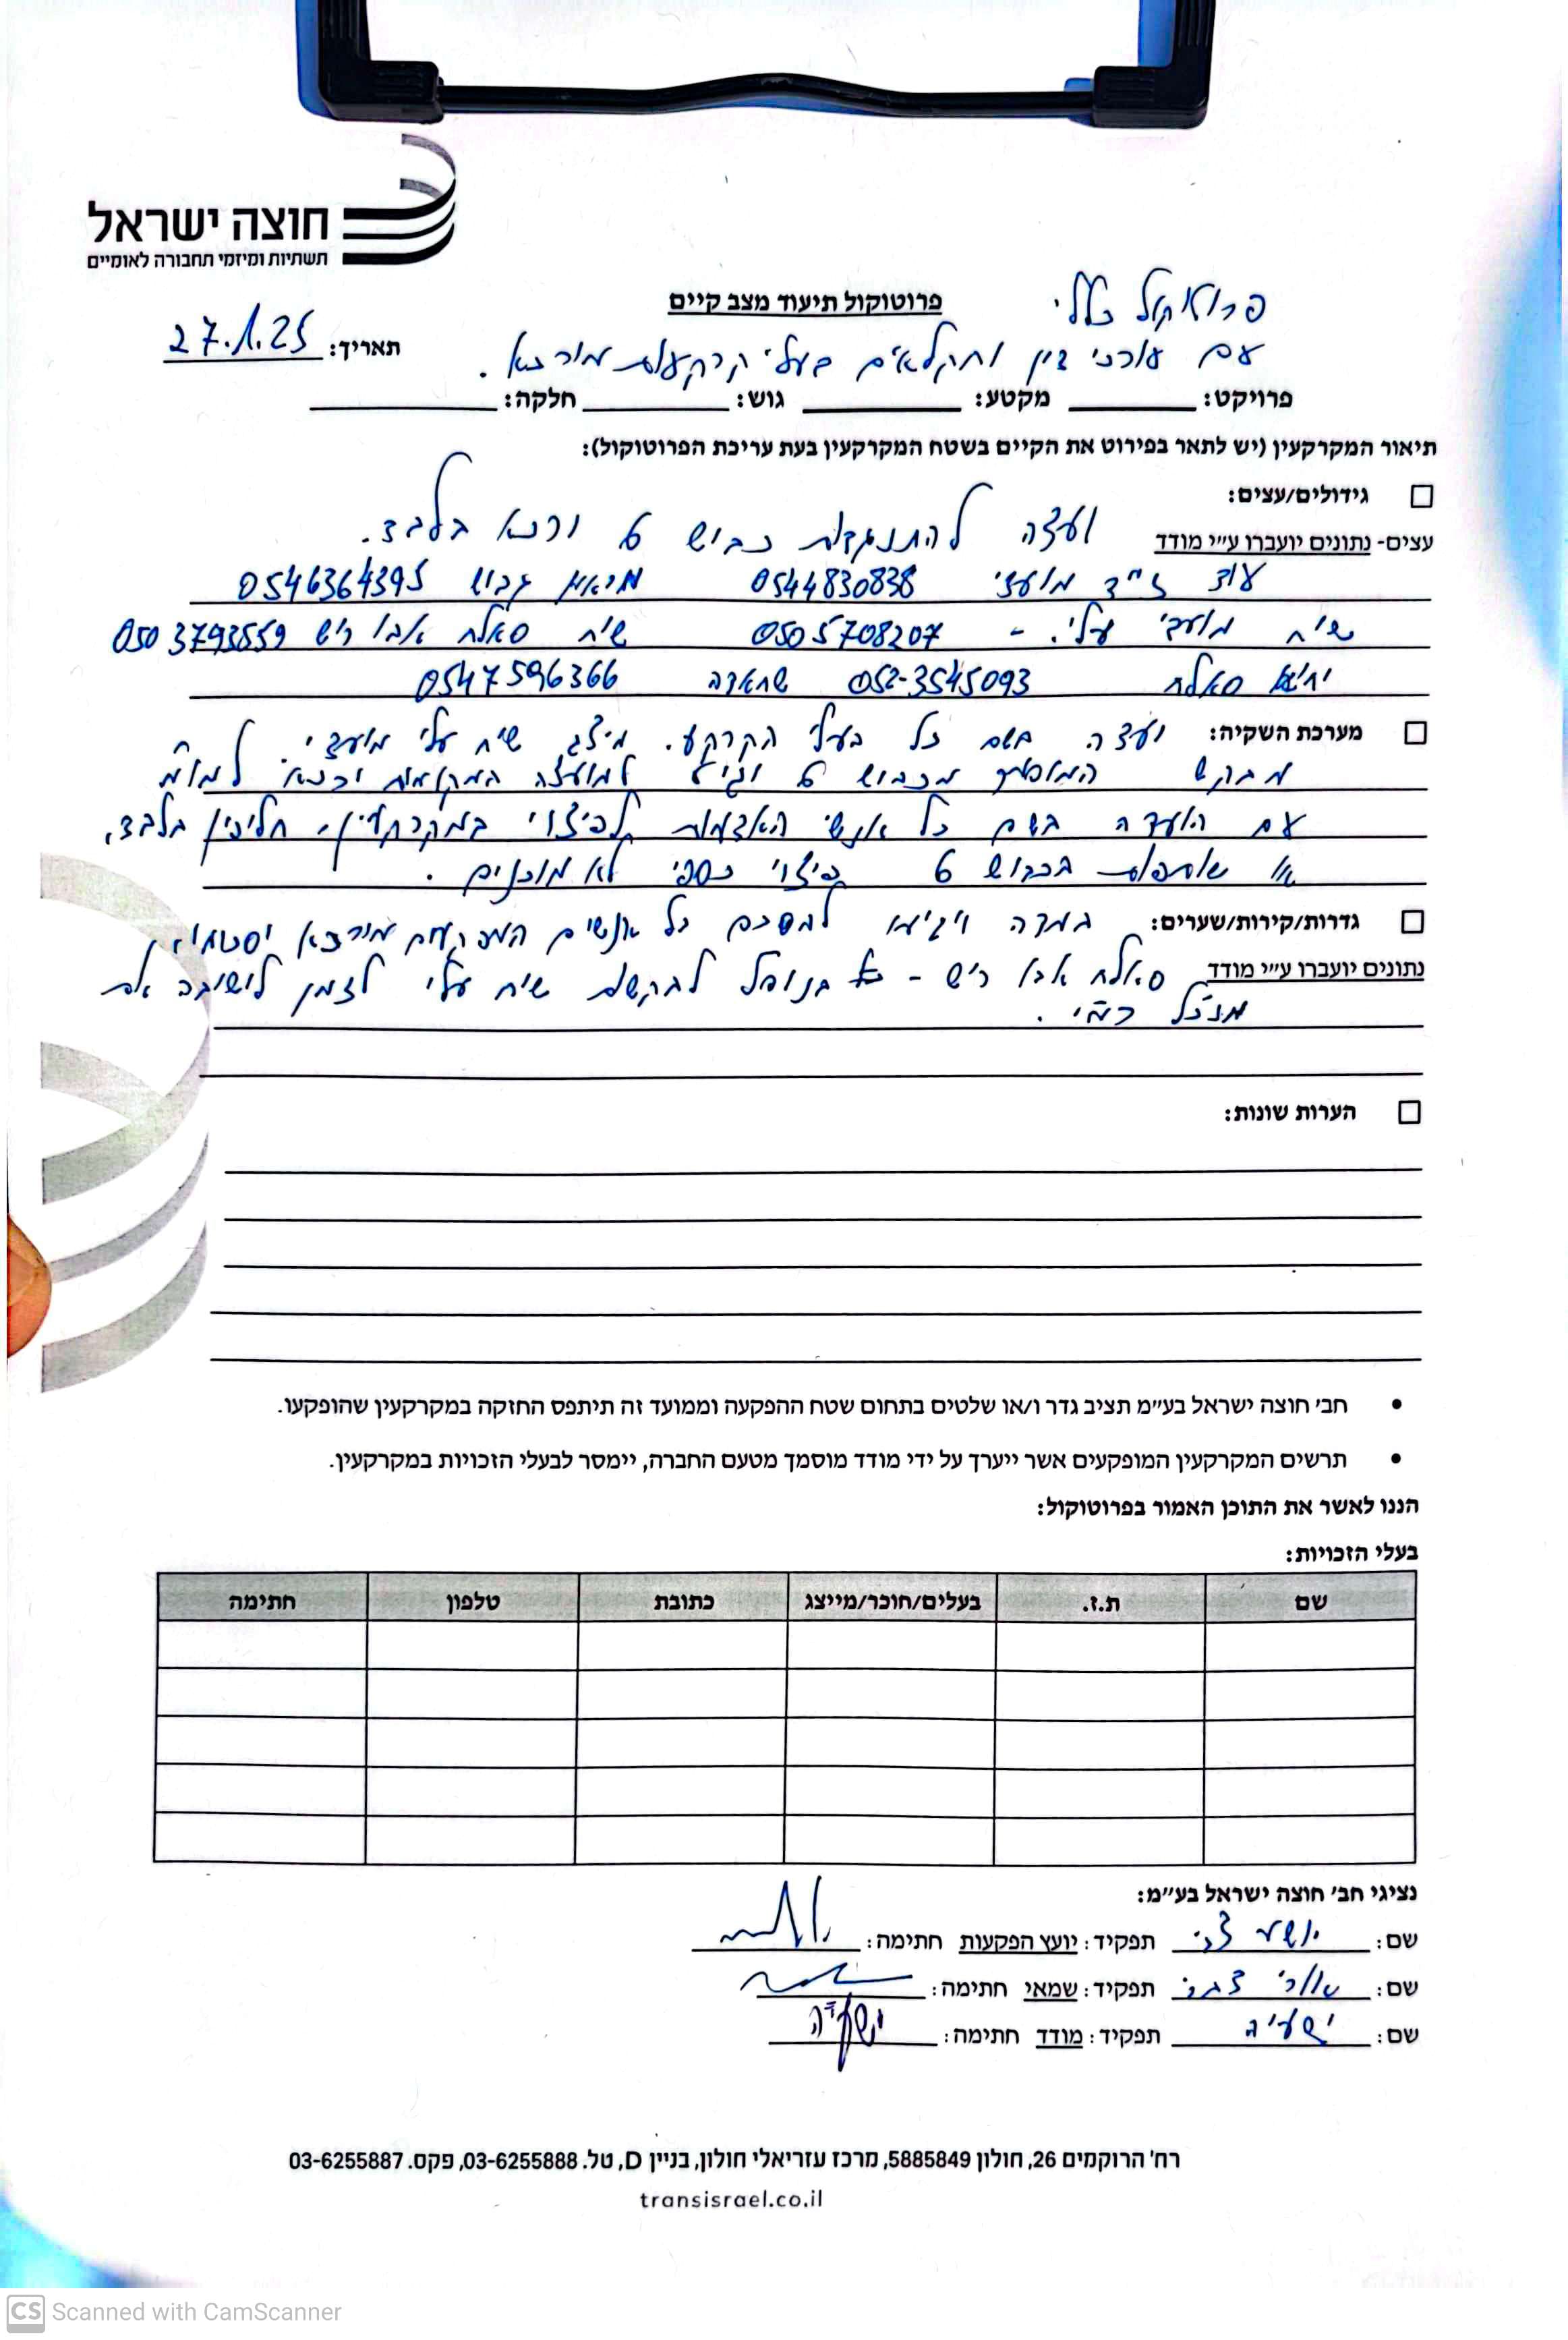 חוצה ישראל
תשתיות ומיזמי תחבורה לאומיים
פרוטוקול כללי
פרוטוקול תיעוד מצב קיים
תאריך: 27.1.25
עם עורכי דין וחקלאים בעלי קרקעות
פרויקט: מקטע: גוש: חלקה:
תיאור המקרקעין (יש לתאר בפירוט את הקיים בשטח המקרקעין בעת עריכת הפרוטוקול):
גידולים/עצים:
ועדה להתנגדות כביש 6 בלבד.
עצים- נתונים יועברו ע״י מודד
עוד 0544830838 0546364395
שיח עלי. - 0505708207 שיח סאלח אבו ריש 0503793559
סאלח 052-3545093 שחאדה 0547596366
מערכת השקיה: ועדה בשם כל בעלי הקרקע. שיח עלי
מבקש מכביש 6
עם הועדה בשם כל אנשי האדמות לפיצוי במקרקעין, חליפין בלבד,
או שותפות בכביש 6 פיצוי כספי לא מוכנים.
גדרות/קירות/שערים: במדה ויגיעו להסכם כל אנשים
נתונים יועברו ע״י מודד
סאלח אבו ריש - לבקשת שיח עלי לזמן לישיבה את
הערות שונות:
• חב׳ חוצה ישראל בע״מ תציב גדר ו/או שלטים בתחום שטח ההפקעה וממועד זה תיתפס החזקה במקרקעין שהופקעו.
• תרשים המקרקעין המופקעים אשר ייערך על ידי מודד מוסמך מטעם החברה, יימסר לבעלי הזכויות במקרקעין.
הננו לאשר את התוכן האמור בפרוטוקול:
בעלי הזכויות:
שם ת.ז. בעלים/חוכר/מייצג כתובת טלפון חתימה
נציגי חב׳ חוצה ישראל בע״מ:
שם: תפקיד: יועץ הפקעות חתימה:
שם: תפקיד: שמאי חתימה:
שם: ישעיה תפקיד: מודד חתימה: ישעיה
רח' הרוקמים 26, חולון 5885849, מרכז עזריאלי חולון, בניין D, טל. 03-6255888, פקס. 03-6255887
transisrael.co.il
CS Scanned with CamScanner